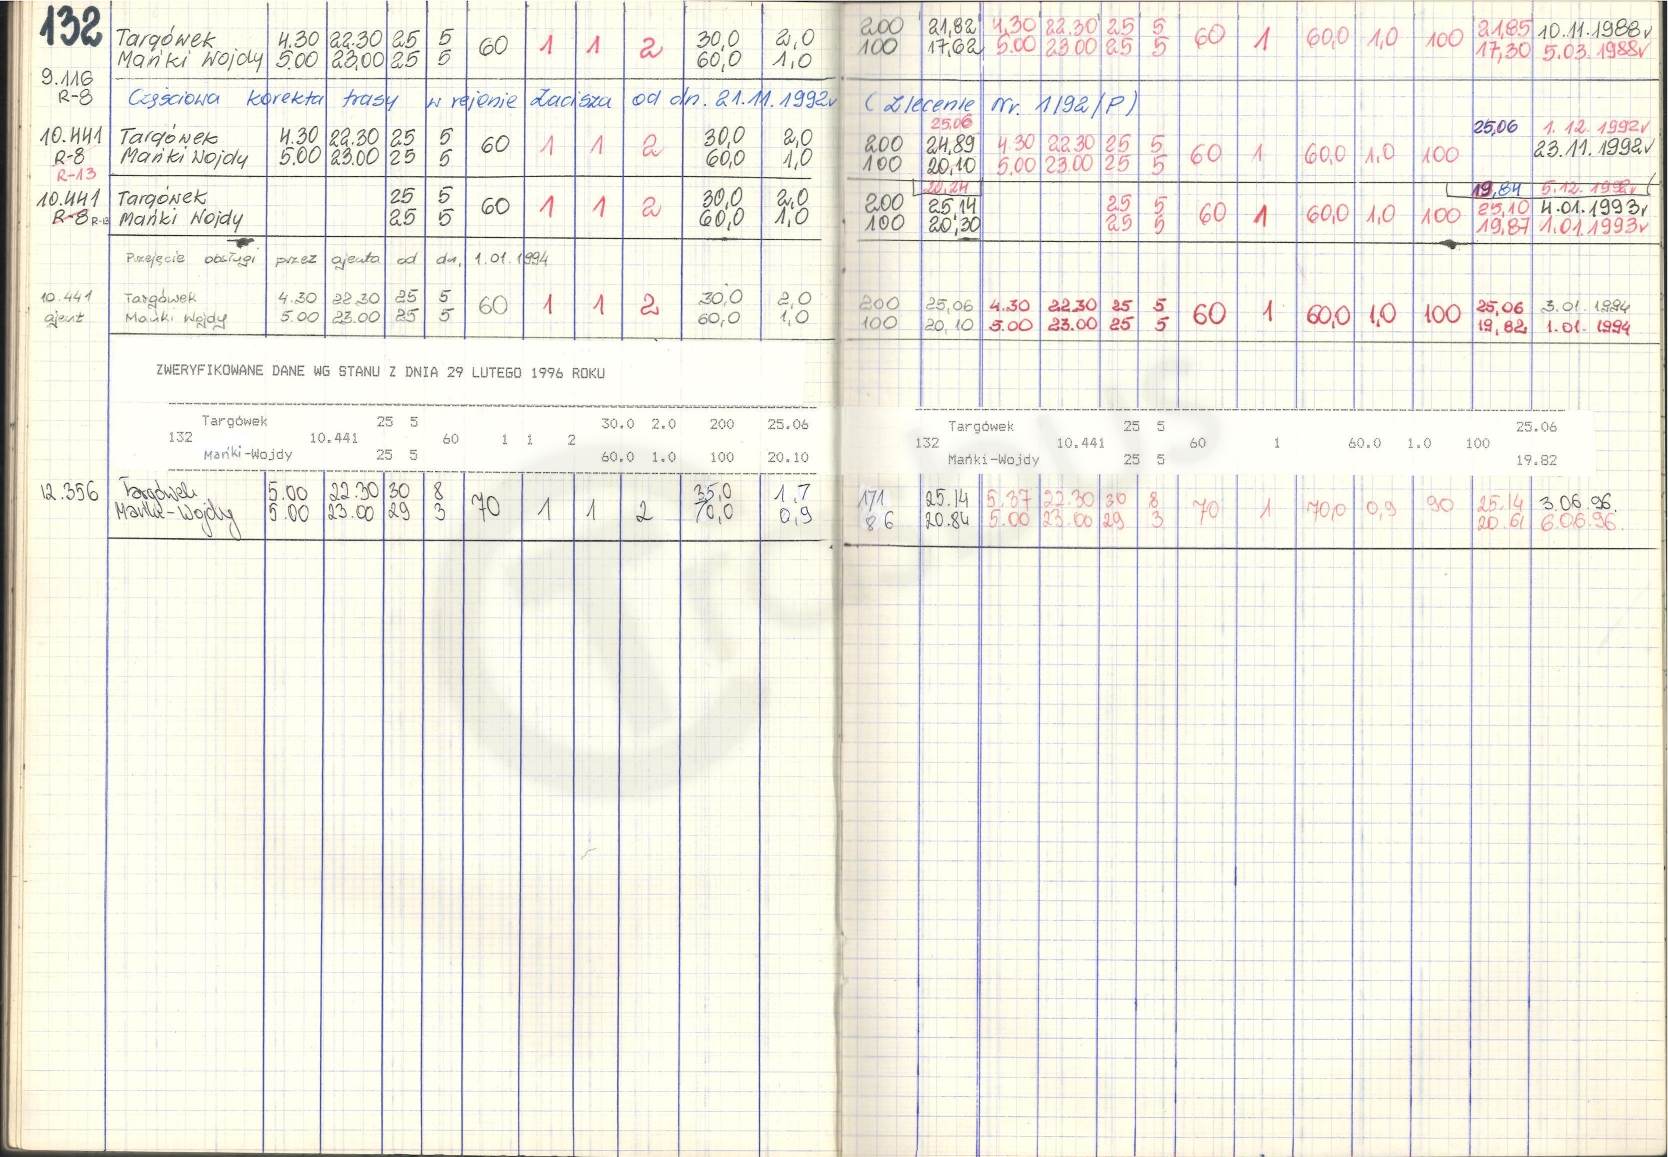 132 Targówek 4.30 22.30 25 5 60 1 1 2 30,0 2,0 200 21,82 4.30 22.30 25 5 60 1 60,0 1,0 100 21,85 10.11.1988r
Mańki Wojdy 5.00 23.00 25 5 60,0 1,0 100 17,62 5.00 23.00 25 5 17,30 5.03.1988r
9.116
R-8 Częściowa korekta trasy w rejonie Zacisza od dn. 21.11.1992r (Zlecenie Nr. 1/92/P)
25.06 25,06 1.12.1992r
10.441 Targówek 4.30 22.30 25 5 60 1 1 2 30,0 2,0 200 24,89 4.30 22.30 25 5 60 1 60,0 1,0 100 23.11.1992r
R-8 Mańki Wojdy 5.00 23.00 25 5 60,0 1,0 100 20,10 5.00 23.00 25 5
R-13
20,24 19,84 5.12.1992r
10.441 Targówek 25 5 60 1 1 2 30,0 2,0 200 25,14 25 5 60 1 60,0 1,0 100 25,10 4.01.1993r
R-8 R-13 Mańki Wojdy 25 5 60,0 1,0 100 20,30 25 5 19,87 1.01.1993r
Przejęcie obsługi przez ajenta od dn. 1.01.1994
10.441 Targówek 4.30 22.30 25 5 60 1 1 2 30,0 2,0 200 25,06 4.30 22.30 25 5 60 1 60,0 1,0 100 25,06 3.01.1994
ajent Mańki Wojdy 5.00 23.00 25 5 60,0 1,0 100 20,10 5.00 23.00 25 5 19,82 1.01.1994
ZWERYFIKOWANE DANE WG STANU Z DNIA 29 LUTEGO 1996 ROKU
Targówek 25 5 30.0 2.0 200 25.06 Targówek 25 5 25.06
132 10.441 60 1 1 2 132 10.441 60 1 60.0 1.0 100
Mańki-Wojdy 25 5 60.0 1.0 100 20.10 Mańki-Wojdy 25 5 19.82
12.356 Targówek 5.00 22.30 30 8 70 1 1 2 35,0 1,7 171 25.14 5.37 22.30 30 8 70 1 70,0 0,9 90 25.14 3.06.96.
Mańki-Wojdy 5.00 23.00 29 3 70,0 0,9 86 20.84 5.00 23.00 29 3 20.61 6.06.96.